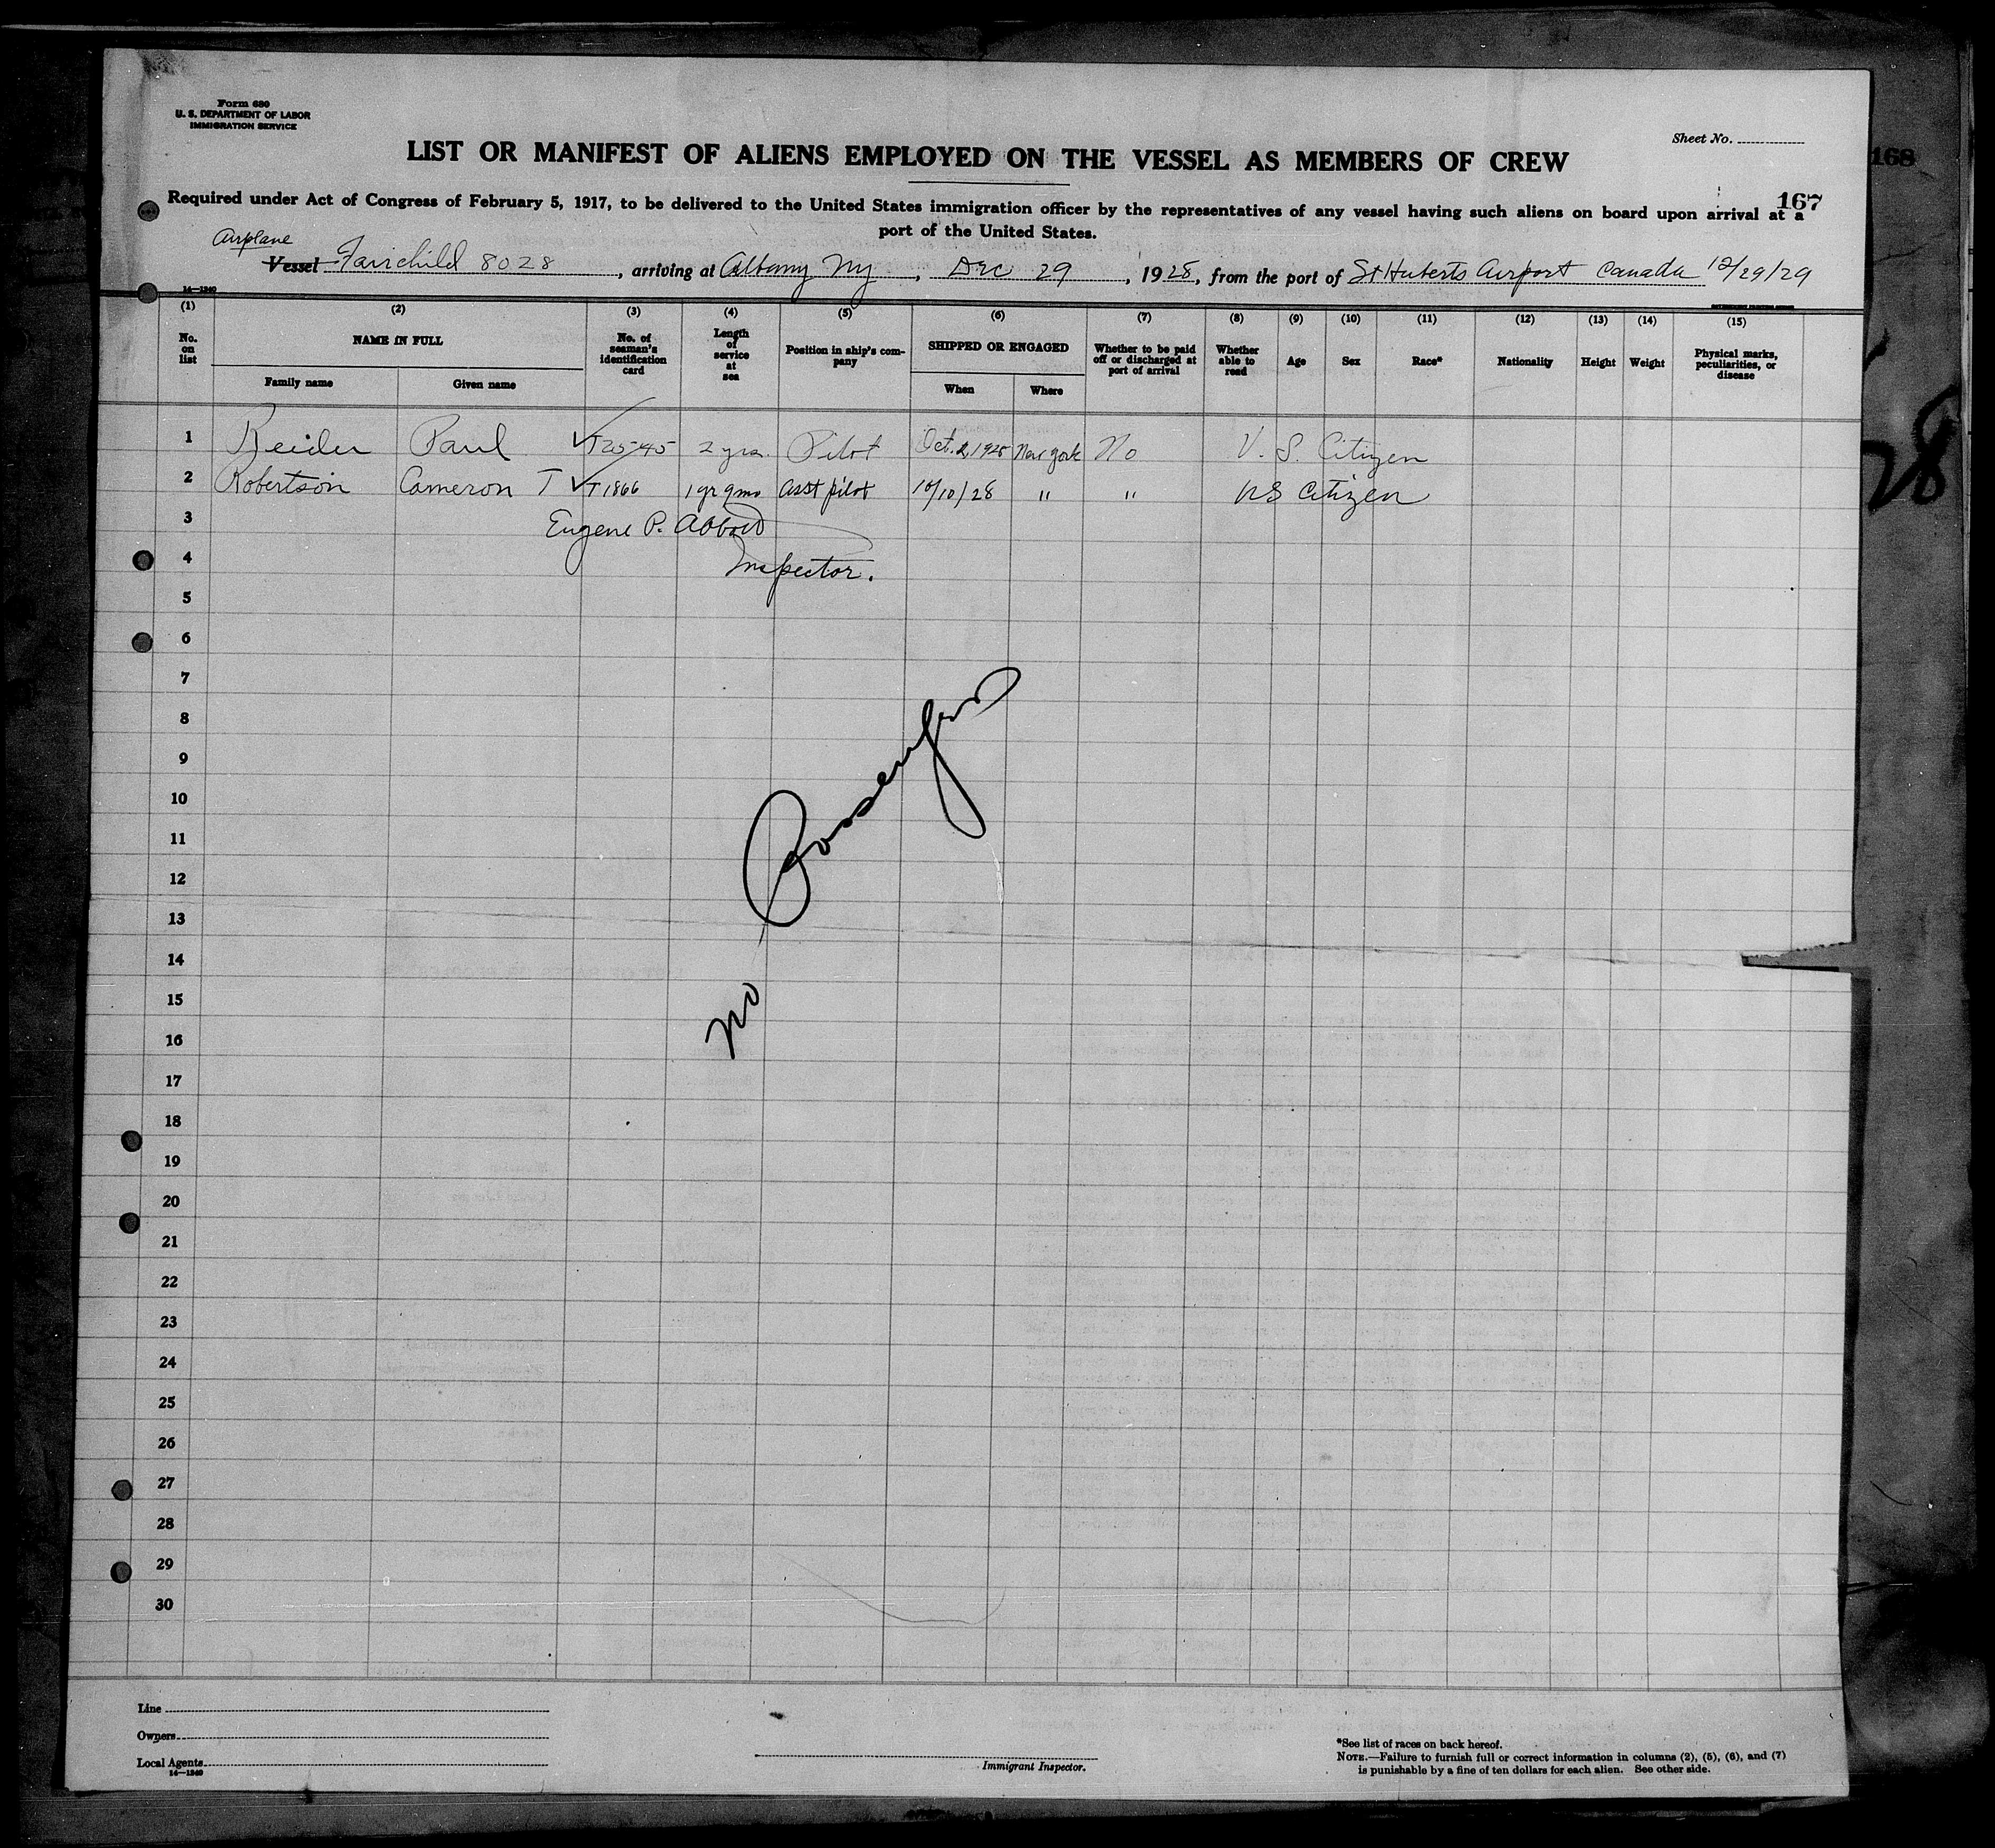 Form 680
U. S. DEPARTMENT OF LABOR
IMMIGRATION SERVICE
Sheet No.
LIST OR MANIFEST OF ALIENS EMPLOYED ON THE VESSEL AS MEMBERS OF CREW
168
167
Required under Act of Congress of February 5, 1917, to be delivered to the United States immigration officer by the representatives of any vessel having such aliens on board upon arrival at a
port of the United States.
Airplane
Vessel Fairchild 8028, arriving at Albany NY, Dec 29, 1928, from the port of St Huberts Airport Canada 12/29/29
14—1240
(1) (2) (3) (4) (5) (6) (7) (8) (9) (10) (11) (12) (13) (14) (15)
No. on list
NAME IN FULL
Family name
Given name
No. of seaman's identification card
Length of service at sea
Position in ship's company
SHIPPED OR ENGAGED
When
Where
Whether to be paid off or discharged at port of arrival
Whether able to read
Age
Sex
Race*
Nationality
Height
Weight
Physical marks, peculiarities, or disease
1 Reider Paul T2545 2 yrs. Pilot Oct. 2, 1928 New York No U. S. Citizen
2 Robertson Cameron T T1866 1 yr 9 mo Asst pilot 10/10/28 " " US Citizen
28
3 Eugene P. Abbott
4 Inspector.
5
6
7
8
9
10
11
12
13
14
15
16
No Passengers
17
18
19
20
21
22
23
24
25
26
27
28
29
30
Line
Owners
Local Agents
14—1240
Immigrant Inspector.
*See list of races on back hereof.
NOTE.—Failure to furnish full or correct information in columns (2), (5), (6), and (7)
is punishable by a fine of ten dollars for each alien. See other side.